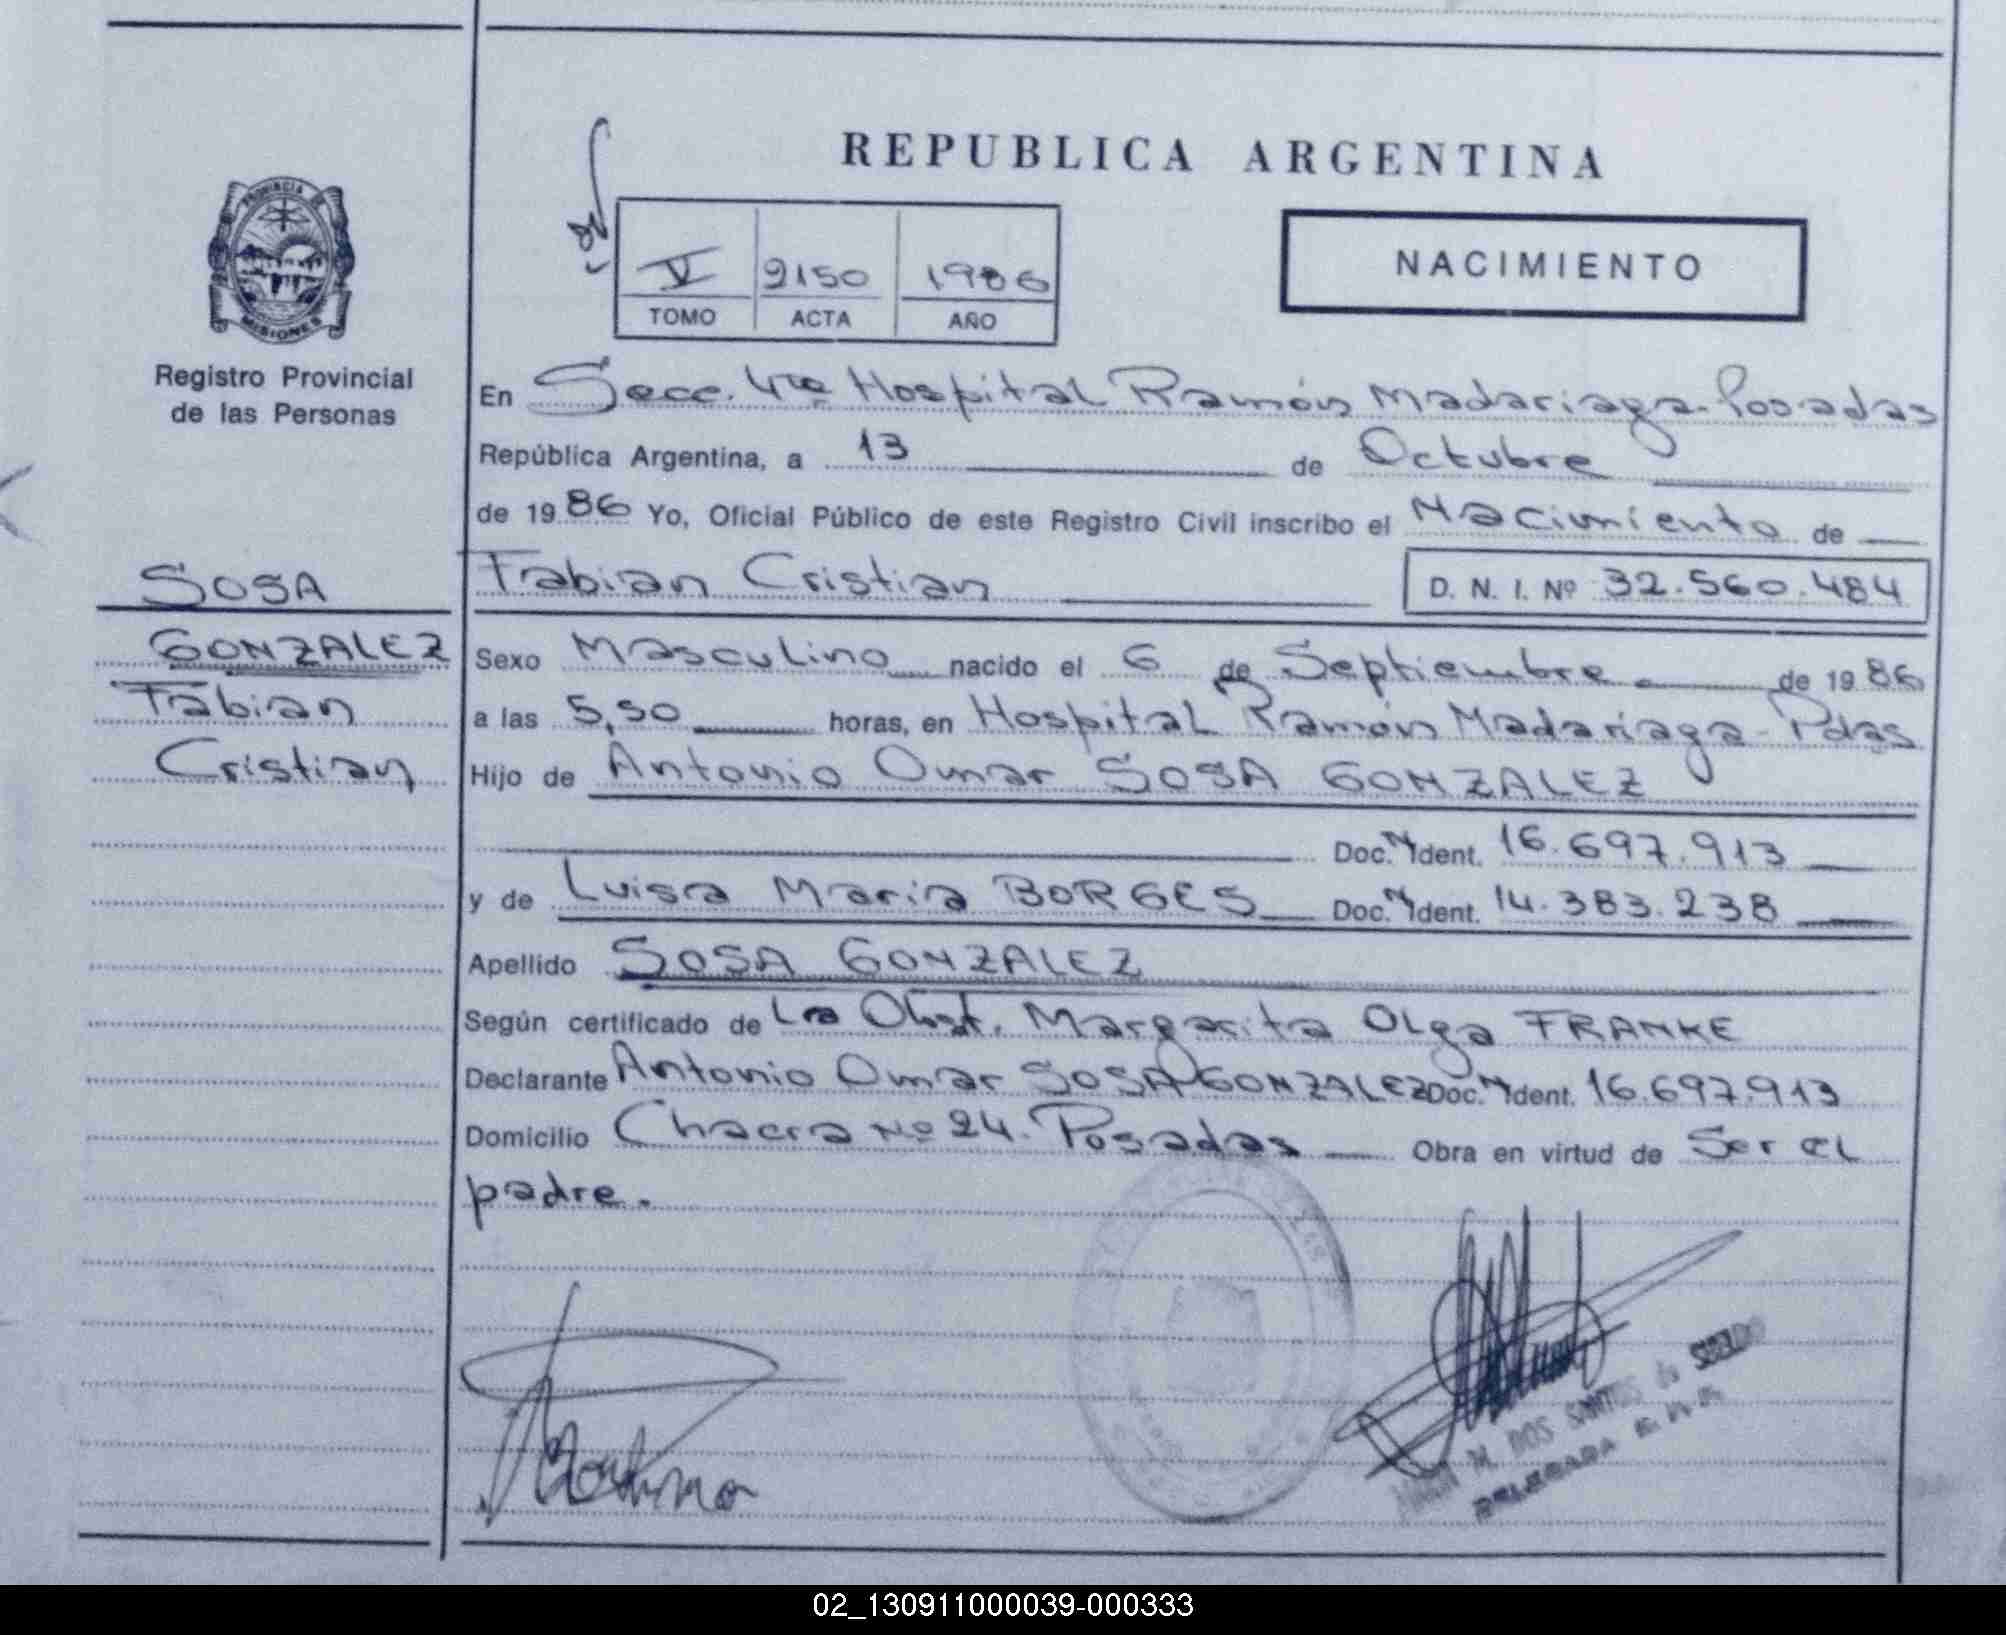 REPUBLICA ARGENTINA
PROVINCIA DE
MISIONES
Registro Provincial
de las Personas
V 2150 1986
TOMO ACTA AÑO
NACIMIENTO
En Secc. 4ta Hospital Ramón Madariaga-Posadas
República Argentina, a 13 de Octubre
de 1986 Yo, Oficial Público de este Registro Civil inscribo el Nacimiento de
Fabian Cristian D. N. I. Nº 32.560.484
SOSA
GONZALEZ
Fabian
Cristian
Sexo Masculino nacido el 6 de Septiembre de 1986
a las 5,50 horas, en Hospital Ramón Madariaga-Pdas
Hijo de Antonio Omar SOSA GONZALEZ
Doc. N Ident. 16.697.913
y de Luisa Maria BORGES Doc. N Ident. 14.383.238
Apellido SOSA GONZALEZ
Según certificado de La Obst. Margarita Olga FRANKE
Declarante Antonio Omar SOSA GONZALEZ Doc. N Ident. 16.697.913
Domicilio Chacra Nº 24. Posadas Obra en virtud de Ser el
padre.
M. DOS SANTOS de
DELEGADA
02_130911000039-000333